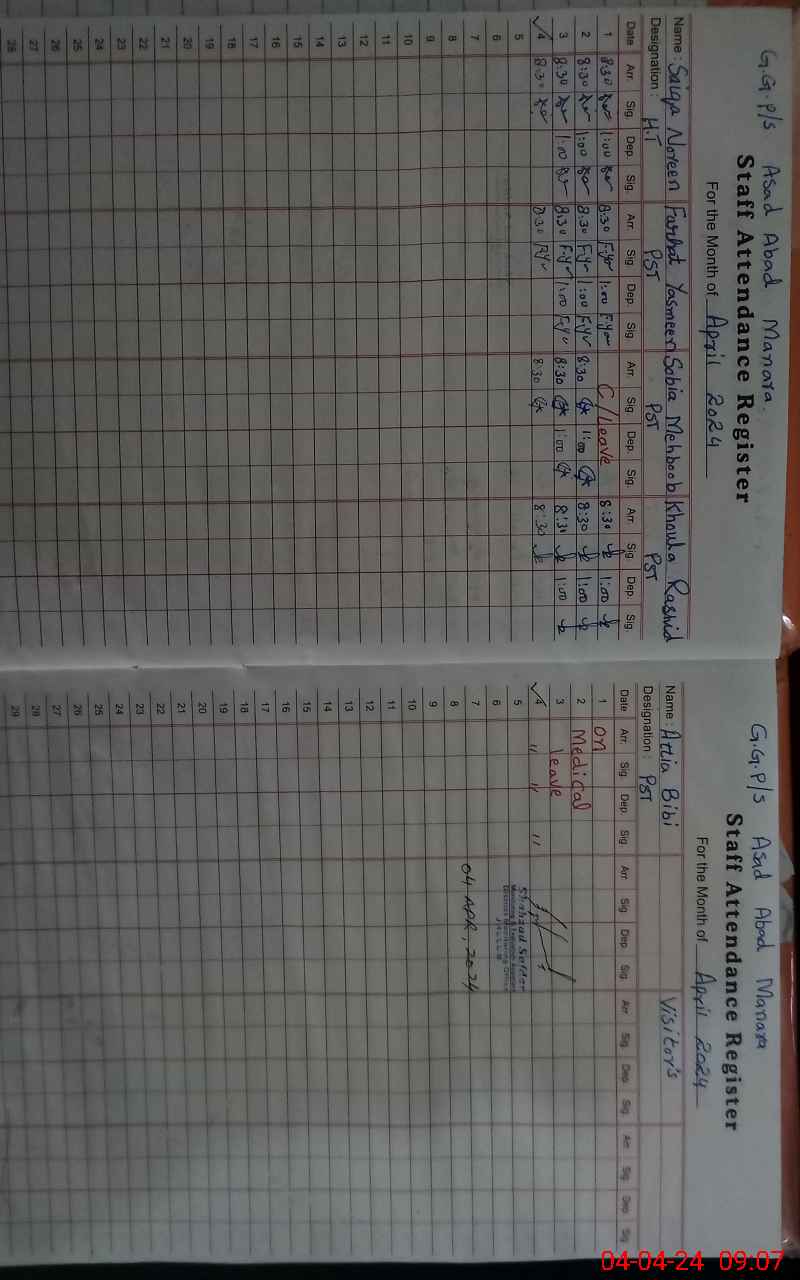 G.G.P/S Asad Abad Manara.
Staff Attendance Register
For the Month of April 2024
Name : Saiqa Noreen Farhat Yasmeen Sobia Mehboob Khoula Rashid
Designation : H.T PST PST PST
Date Arr. Sig. Dep. Sig. Arr. Sig. Dep. Sig. Arr. Sig. Dep. Sig. Arr. Sig. Dep. Sig.
1 8:30 1:00 8:30 1:00 C/Leave 8:30 1:00
2 8:30 1:00 8:30 1:00 8:30 1:00 8:30 1:00
3 8:30 1:00 8:30 1:00 8:30 1:00 8:30 1:00
4 8:30 8:30 8:30 8:30
5
6
7
8
9
10
11
12
13
14
15
16
17
18
19
20
21
22
23
24
25
26
27
28
G.G.P/S Asad Abad Manara
Staff Attendance Register
For the Month of April 2024
Name : Attia Bibi Visitor's
Designation : PST
Date Arr. Sig. Dep. Sig. Arr. Sig. Dep. Sig. Arr. Sig. Dep. Sig. Arr. Sig. Dep. Sig.
1 On
2 Medical
3 leave
4 " " "
5 Shahzad
6
7 04 APR, 2024
8
9
10
11
12
13
14
15
16
17
18
19
20
21
22
23
24
25
26
27
28
29
04-04-24 09:07